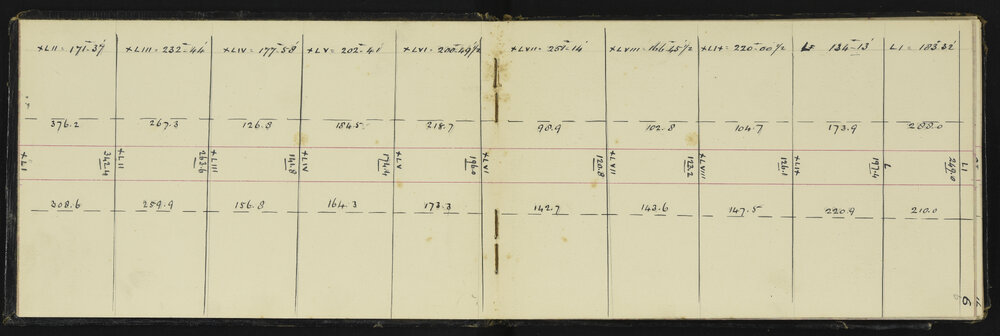 XLII = 171-37' XLIII = 232-44' XLIV = 177-58' XLV = 202-41' XLVI = 200-49½ XLVII = 251-14' XLVIII = 166-45½ XLIX = 220-00½ L = 134-13' LI = 183.32'
376.2 267.3 126.8 184.5 218.7 98.9 102.8 104.7 173.9 288.0
XLI 342.4 XLII 263.6 XLIII 141.8 XLIV 174.4 XLV 196.0 XLVI 120.8 XLVII 123.2 XLVIII 126.1 XLIX 197.4 L 249.0 LI
308.6 259.9 156.8 164.3 173.3 142.7 143.6 147.5 220.9 210.0
6